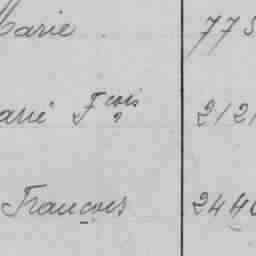 Marie 775
arie Fçois 2121
François 2440